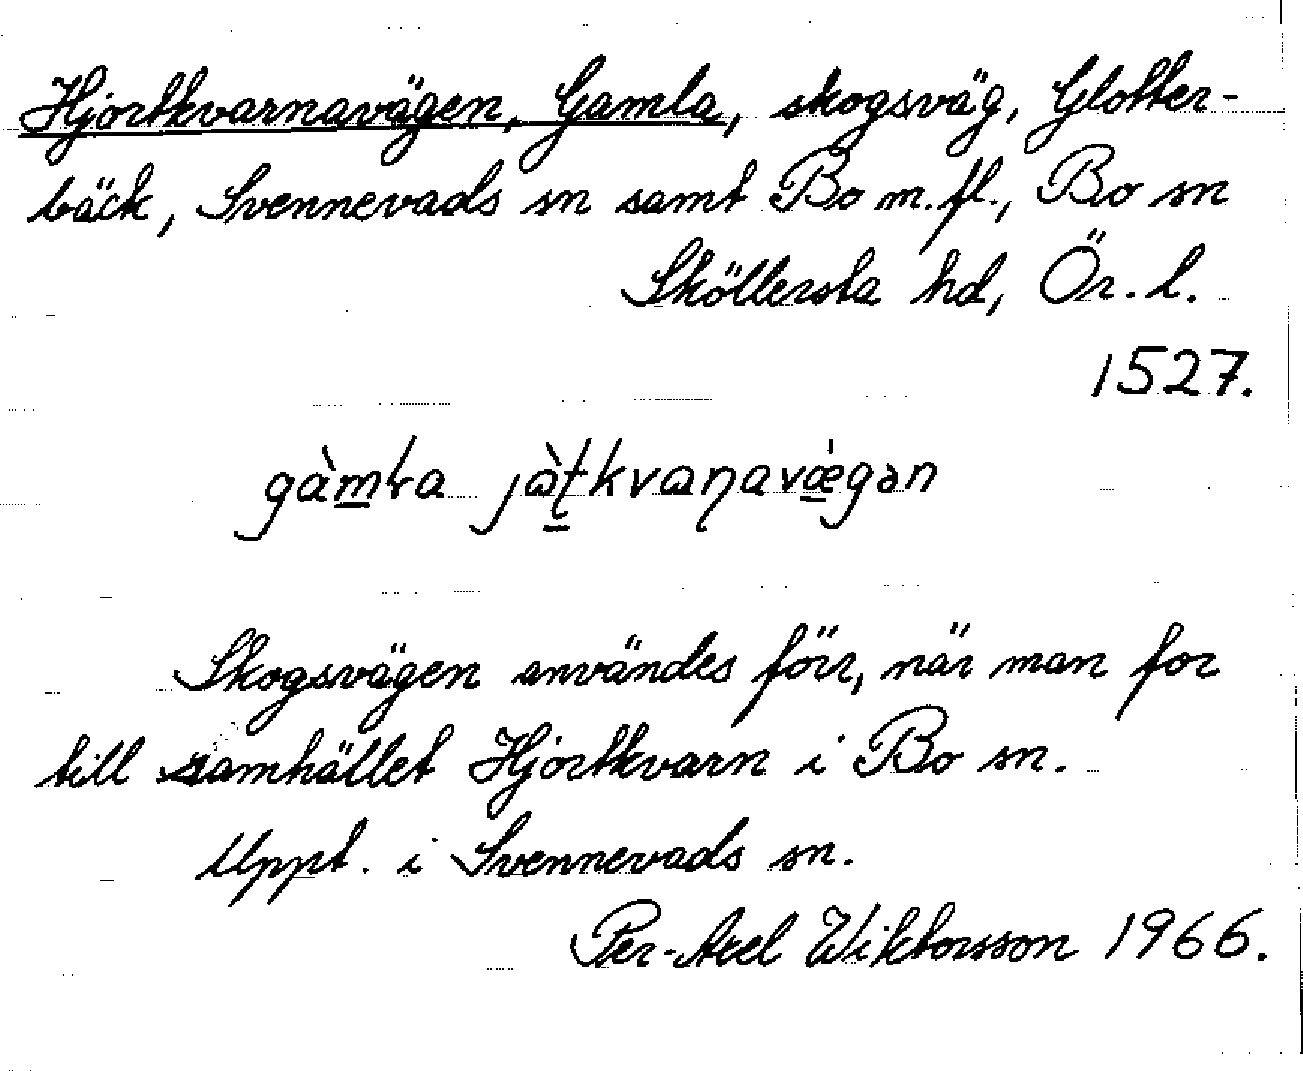 Hjortkvarnavägen, Gamla, skogsväg, Glotter-
bäck, Svennevads sn samt Bo m.fl., Bo sn
Sköllersta hd, Ör. l.
1527.
gàmɫa jàʈkvaɳavǽgən
Skogsvägen användes förr, när man for
till samhället Hjortkvarn i Bo sn.
Uppt. i Svennevads sn.
Per-Axel Wiktorsson 1966.